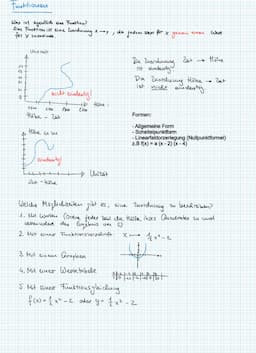 Funktionen
Was ist eigentlich eine Funktion?
Eine Funktion ist eine Zuordnung x → y, die jedem Wert für x genau einen Wert
für y zuordnet.
Uhrzeit
nicht eindeutig!
Höhe
Höhe - Zeit
Die Zuordnung Zeit → Höhe
ist eindeutig
Die Zuordnung Höhe → Zeit
ist nicht eindeutig
Höhe in m
eindeutig!
Uhrzeit
Zeit - Höhe
Formen:
- Allgemeine Form
- Scheitelpunktform
- Linearfaktorzerlegung (Nullpunktformel)
z.B f(x) = a (x - 2) (x - 4)
Welche Möglichkeiten gibt es, eine Zuordnung zu beschreiben?
1. Mit Worten (Ordne jeder Zahl die Hälfte ihres Quadrates zu und
vom Ergebnis 2)
2. Mit einer Funktionsvorschrift x → ½ x² - 2
3. Mit einem Graphen
4. Mit einer Wertetabelle
5. Mit einer Funktionsgleichung
f(x) = ½ x² - 2 oder y = ½ x² - 2